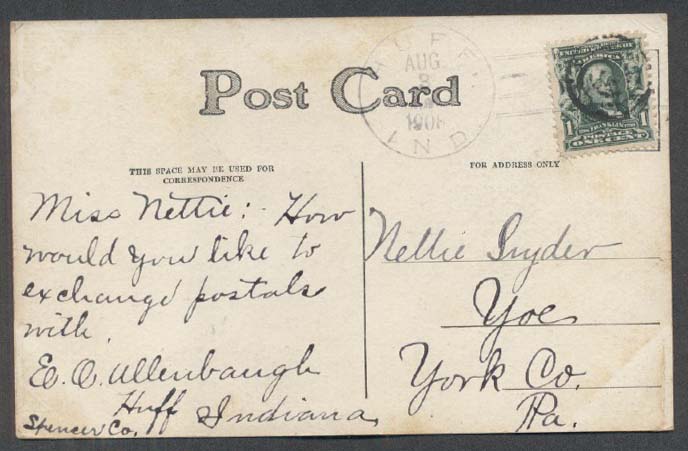 HUFF
AUG
8
1908
IND.
SERIES 1902
1 BENJAMIN FRANKLIN 1
POSTAGE
ONE CENT
Post Card
THIS SPACE MAY BE USED FOR
CORRESPONDENCE
FOR ADDRESS ONLY
Miss Nettie:- How
would you like to
exchange postals
with.
E. O. Ullenbaugh
Huff Indiana
Spencer Co.
Nettie Snyder
Yoe
York Co.
Pa.